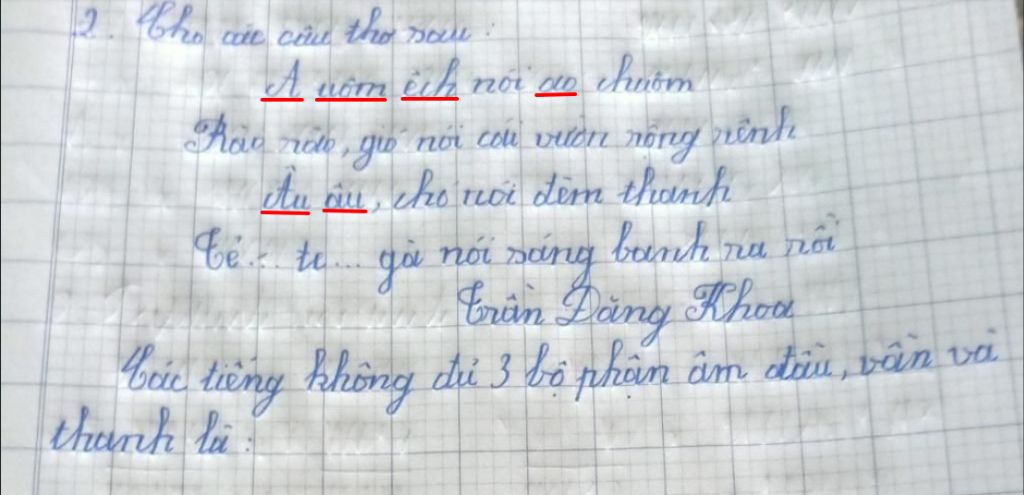 2. Cho các câu thơ sau:
A uôm ếch nói ao chuôm
Rào rào, gió nói cái vườn rộng rênh
Âu âu, chó nói đêm thanh
Tẻ.. te... gà nói sáng banh ra rồi
Trần Đăng Khoa
Các tiếng không đủ 3 bộ phận âm đầu, vần và
thanh là: